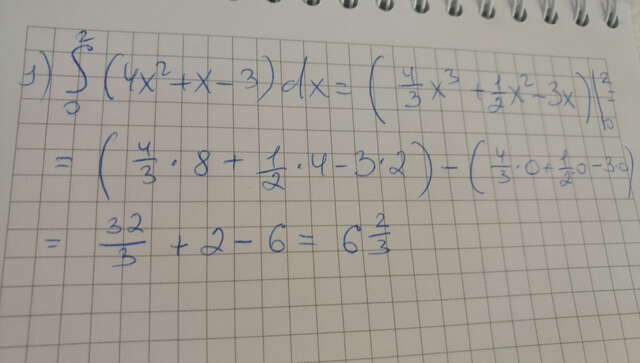 1) ∫₀² (4x² + x - 3) dx = (4/3 x³ + 1/2 x² - 3x) |₀² =
= (4/3 · 8 + 1/2 · 4 - 3 · 2) - (4/3 · 0 + 1/2 0 - 3·0)
= 32/3 + 2 - 6 = 6 2/3